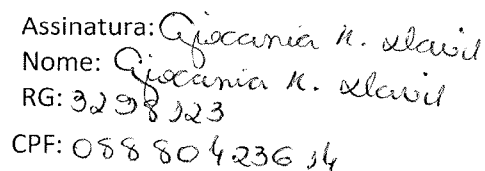 Assinatura: Giocania K. Davil
Nome: Giocania K. Davil
RG: 3298123
CPF: 08880423614